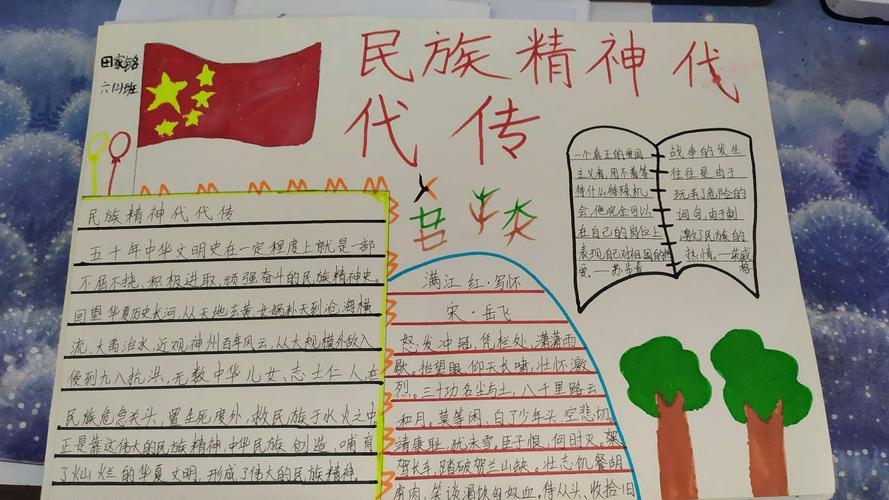 民族精神代
代传
田家铭
六(2)班
民族精神代代传
五千年中华文明史在一定程度上就是一部
不屈不挠、积极进取、顽强奋斗的民族精神史。
回望华夏历史长河,从天地玄黄、女娲补天到沧海横
流、大禹治水,近观神州百年风云,从大规模外敌入
侵到九八抗洪,无数中华儿女、志士仁人在
民族危急关头,置生死度外,救民族于水火之中
正是靠这伟大的民族精神,中华民族创造、哺育
了灿烂的华夏文明,形成了伟大的民族精神。
满江红·写怀
宋·岳飞
怒发冲冠,凭栏处、潇潇雨
歇。抬望眼、仰天长啸,壮怀激
烈。三十功名尘与土,八千里路云
和月。莫等闲、白了少年头,空悲切。
靖康耻,犹未雪。臣子恨,何时灭。驾
驾长车,踏破贺兰山缺。壮志饥餐胡
虏肉,笑谈渴饮匈奴血。待从头、收拾旧
一个真正的爱国
主义者,用不着等
待什么特殊机
会,他完全可以
在自己的岗位上
表现自己对祖国的热
爱。——苏步青
战争的发生
往往是由于
玩弄了危险的
词句,由于刺
激了民族的
热情。——英